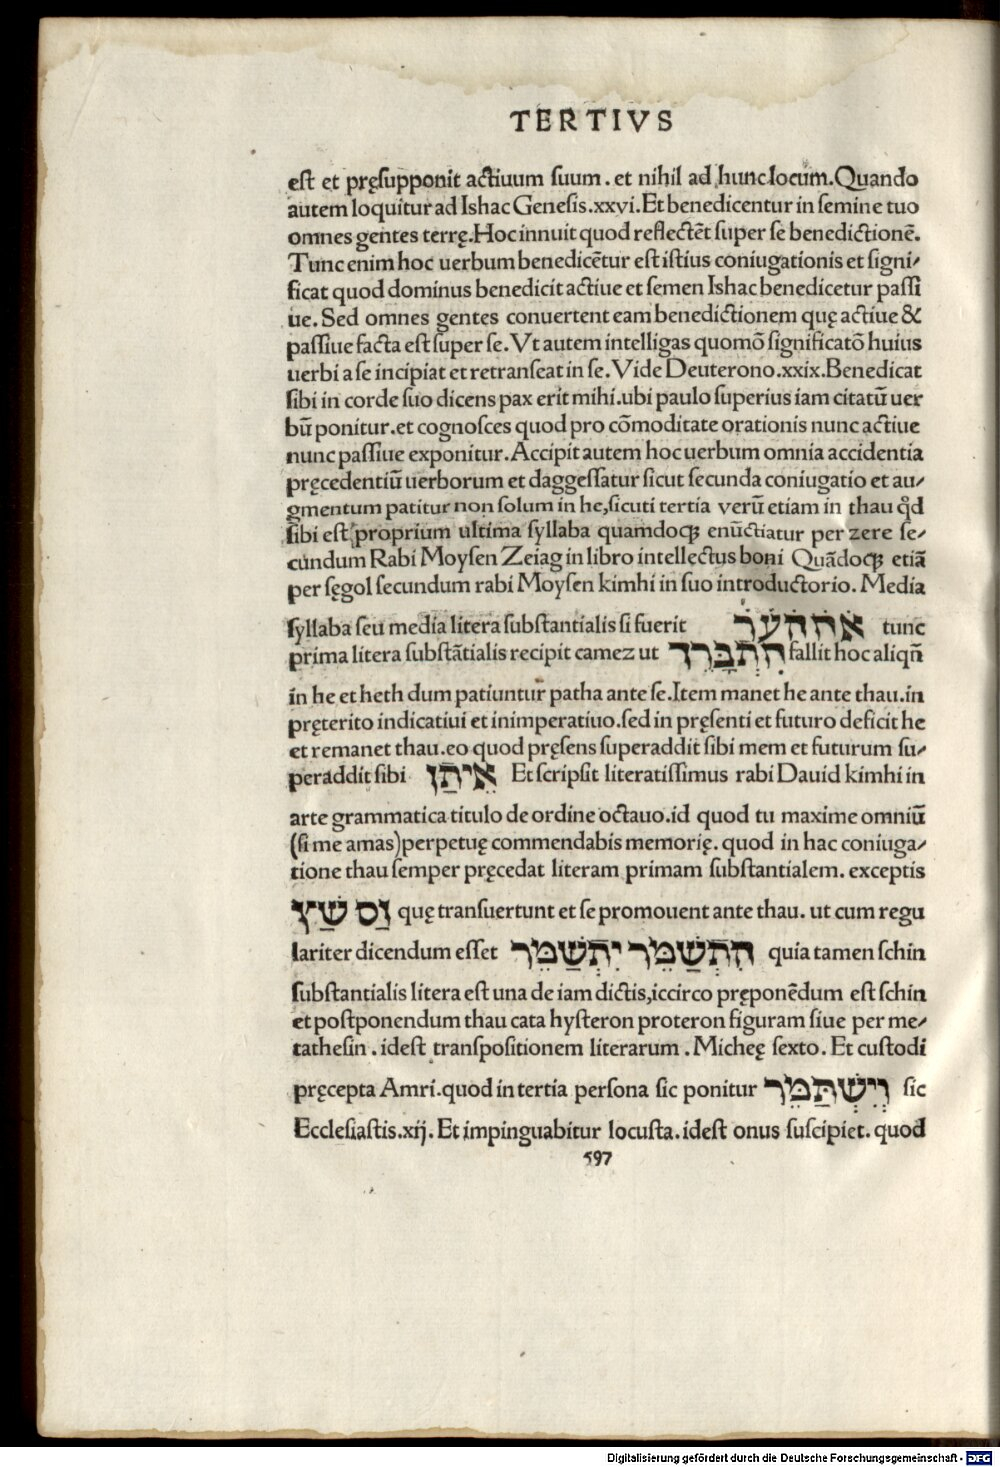 TERTIVS
est et pręsupponit actiuum suum. et nihil ad hunc locum. Quando
autem loquitur ad Ishac Genesis. xxvi. Et benedicentur in semine tuo
omnes gentes terrę. Hoc innuit quod reflectēt super se benedictionē.
Tunc enim hoc uerbum benedicētur est istius coniugationis et signi/
ficat quod dominus benedicit actiue et semen Ishac benedicetur passi
ue. Sed omnes gentes conuertent eam benedictionem quę actiue &
passiue facta est super se. Vt autem intelligas quomō significatō huius
uerbi a se incipiat et retranseat in se. Vide Deuterono. xxix. Benedicat
sibi in corde suo dicens pax erit mihi. ubi paulo superius iam citatū uer
bū ponitur. et cognosces quod pro cōmoditate orationis nunc actiue
nunc passiue exponitur. Accipit autem hoc uerbum omnia accidentia
pręcedentiū uerborum et daggessatur sicut secunda coniugatio et au/
gmentum patitur non solum in he, sicuti tertia verū etiam in thau qd̄
sibi est proprium ultima syllaba quamdoqꝫ enūctiatur per zere se/
cundum Rabi Moysen Zeiag in libro intellectus boni Quādoqꝫ etiā
per sęgol secundum rabi Moysen kimhi in suo introductorio. Media
syllaba seu media litera substantialis si fuerit אֹחֹהֹעֹרֹ tunc
prima litera substātialis recipit camez ut הִתְבָּרֵךְ fallit hoc aliqñ
in he et heth dum patiuntur patha ante se. Item manet he ante thau. in
pręterito indicatiui et in imperatiuo. sed in pręsenti et futuro deficit he
et remanet thau. eo quod pręsens superaddit sibi mem et futurum su/
peraddit sibi אֵיתַן Et scripsit literatissimus rabi Dauid kimhi in
arte grammatica titulo de ordine octauo. id quod tu maxime omniū
(si me amas) perpetuę commendabis memorię. quod in hac coniuga/
tione thau semper pręcedat literam primam substantialem. exceptis
זַס שַׁץ quę transuertunt et se promouent ante thau. ut cum regu
lariter dicendum esset הִתְשַׁמֵּר יִתְשַׁמֵּר quia tamen schin
substantialis litera est una de iam dictis, iccirco pręponēdum est schin
et postponendum thau cata hysteron proteron figuram siue per me/
tathesin. idest transpositionem literarum. Micheę sexto. Et custodi
pręcepta Amri. quod in tertia persona sic ponitur וְיִשְׁתַּמֵּר sic
Ecclesiastis. xij. Et impinguabitur locusta. idest onus suscipiet. quod
597
Digitalisierung gefördert durch die Deutsche Forschungsgemeinschaft - DFG